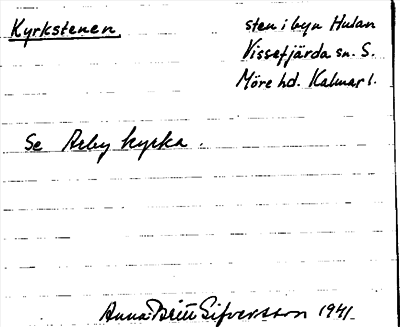 Kyrkstenen.
sten i byn Hulan
Vissefjärda sn. S.
Möre hd. Kalmar l.
Se Arby kyrka.
Anna-Britt Sifversson 1941.